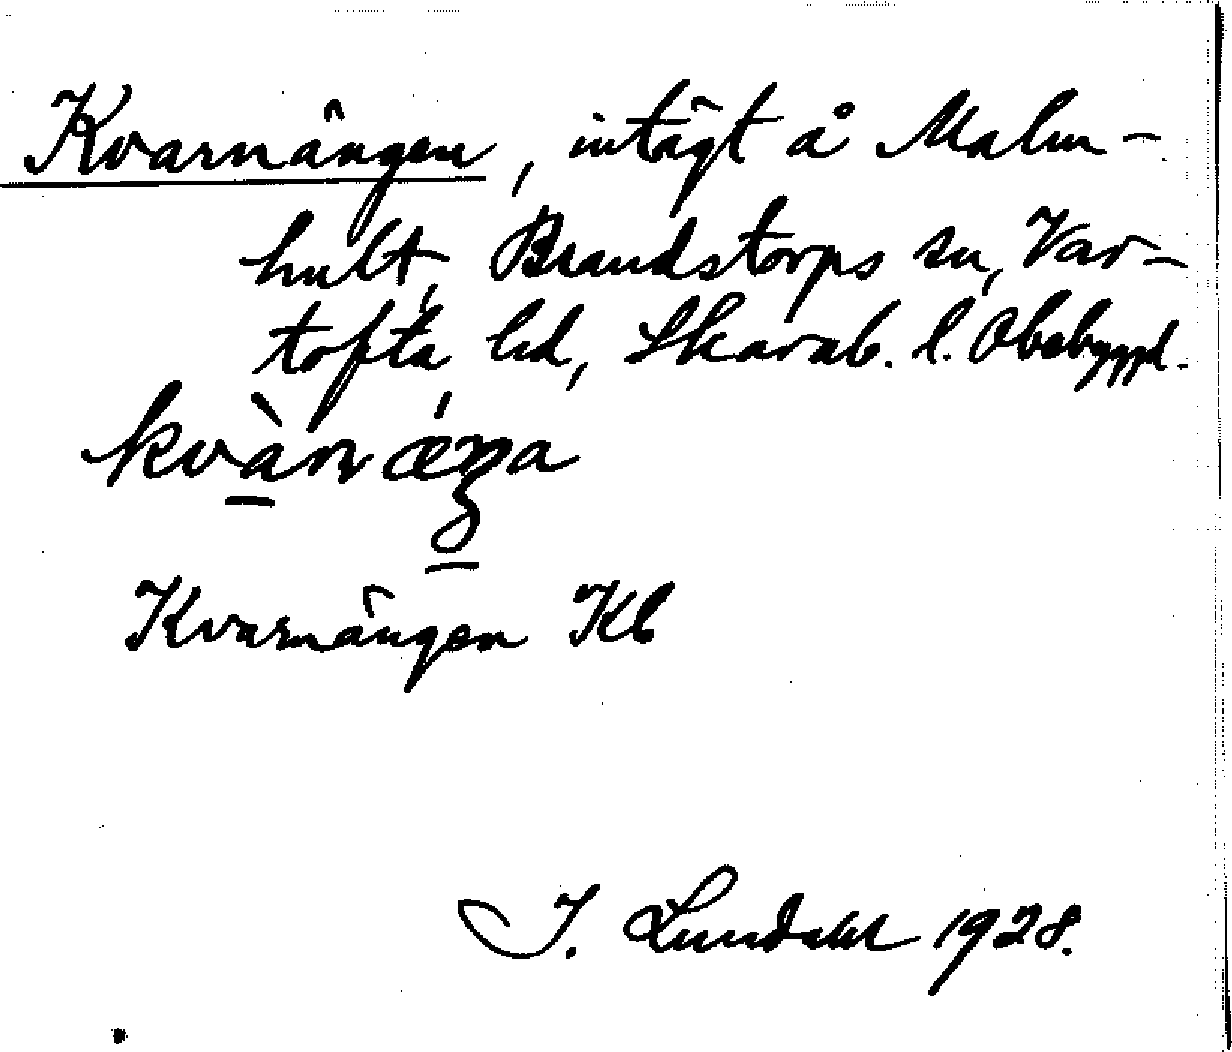 Kvarnängen, intägt å Malm-
hult, Brandstorps sn, Var-
tofta hd, Skarab. l. Obebyggd.
kvàrnæŋa
Kvarnängen Kb
I. Lundahl 1928.